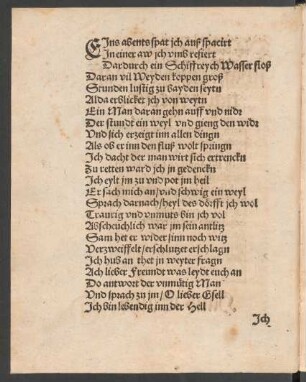 EIns abents spat ich auß spacirt
In einer aw ich vmb refiert
Dardurch ein Schiffreych Wasser floß
Daran vil Weyden koppen groß
Stunden lustig zu bayden seytn
Alda erblicket ich von weytn
Ein Man daran gehn auff vnd nidr
Der stundt ein weyl vnd gieng den widr
Vnd sich erzeigt inn allen dingn
Als ob er inn den fluß wolt springn
Ich dacht der man wirt sich ertrenckn
Zu retten ward ich in gedenckn
Ich eylt zm zu vnd pot jm heil
Er sach mich an/vnd schwig ein weyl
Sprach darnach/heyl des dörfft ich wol
Traurig vnd vnmuts bin ich vol
Abscheuchlich war jm sein antlitz
Sam het er wider sinn noch witz
Verzweiffelt/erschluntzt erschlagn
Ich hub an thet jn weyter fragn
Ach lieber Freundt was leydt euch an
Do antwort der vnmütig Man
Vnd sprach zu jm/O lieber Gsell
Ich bin lebendig inn der Hell
Ich